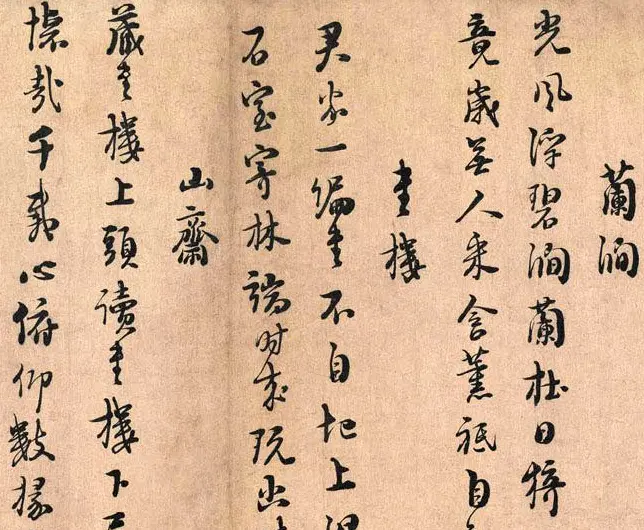 蘭澗
光風浮碧澗蘭杜日猗
竟歲無人采含薰祗自
書樓
君家一編書不自圯上
石室寄林端時來玩幽
山齋
藏書樓上頭讀書樓下
懷哉千載心俯仰數椽